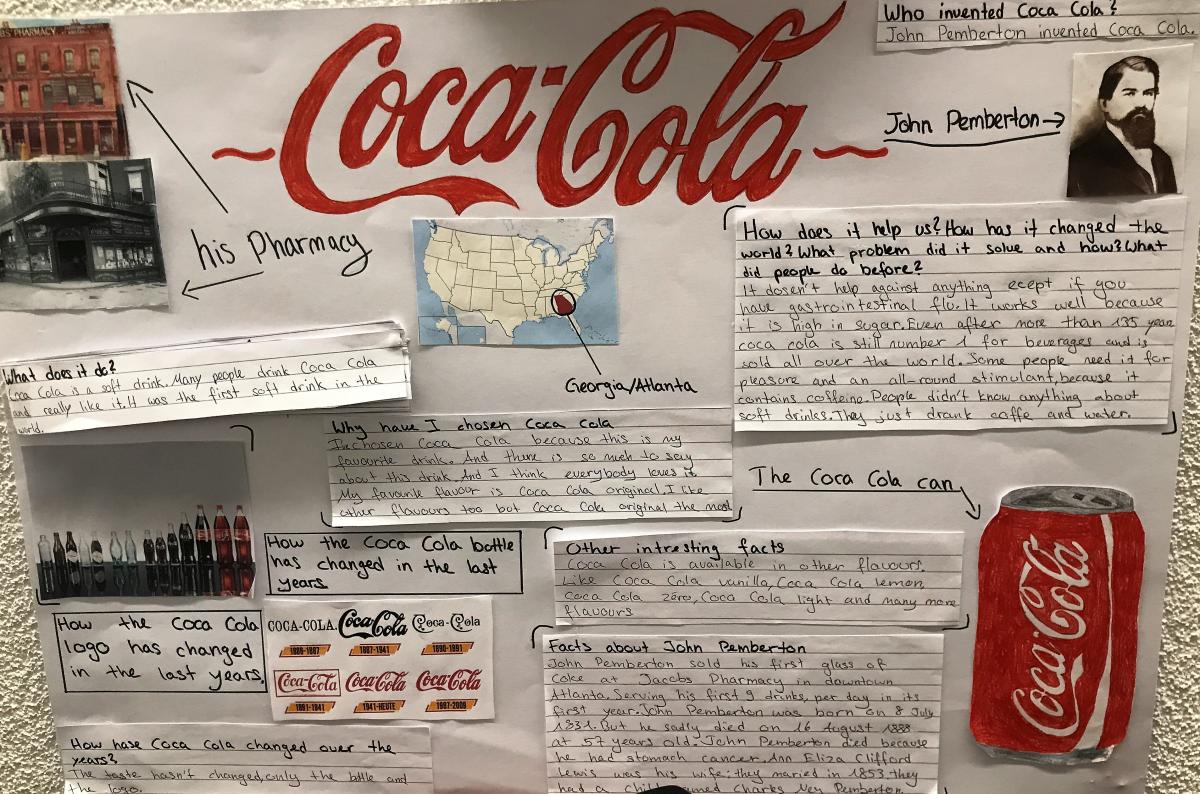 Who invented Coca Cola?
John Pemberton invented Coca Cola.
PHARMACY
Coca-Cola
John Pemberton
his Pharmacy
How does it help us? How has it changed the
world? What problem did it solve and how? What
did people do before?
It dosen't help against anything ecept if you
have gastrointestinal flu. It works well because
it is high in sugar. Even after more than 135 year
coca cola is still number 1 for beverages and is
sold all over the world. Some people need it for
pleasure and an all-round stimulant, because it
contains coffeine. People didn't know anything about
soft drinks. They just drank coffe and water.
Georgia/Atlanta
What does it do?
Coca Cola is a soft drink. Many people drink Coca Cola
and really like it. It was the first soft drink in the
world.
Why have I chosen Coca Cola
I chosen Coca Cola because this is my
favourite drink. And there is so much to say
about this drink. And I think everybody loves it.
My favourite flavour is Coca Cola original. I like
other flavours too but Coca Cola original the most
The Coca Cola can
How the Coca Cola bottle
has changed in the last
years.
Other intresting facts
Coca Cola is available in other flavours.
Like Coca Cola vanilla, Coca Cola lemon,
Coca Cola zero, Coca Cola light and many more
flavours
Coca-Cola
How the Coca Cola
logo has changed
in the last years.
COCA-COLA. Coca-Cola Coca-Cola
1886-1887 1887-1941 1890-1891
Coca-Cola Coca-Cola Coca-Cola
1891-1941 1941-HEUTE 1987-2009
Facts about John Pemberton
John Pemberton sold his first glass of
Coke at Jacobs Pharmacy in downtown
Atlanta. Serving his first 9 drinks, per day in its
first year. John Pemberton was born on 8 July
1831. But he sadly died on 16 August 1888
at 57 years old. John Pemberton died because
he had stomach cancer. Ann Eliza Clifford
Lewis was his wife; they maried in 1853. they
had a child Charles Ney Pemberton
How hase Coca Cola changed over the
years?
The taste hasn't changed, only the bottle and
the logo.